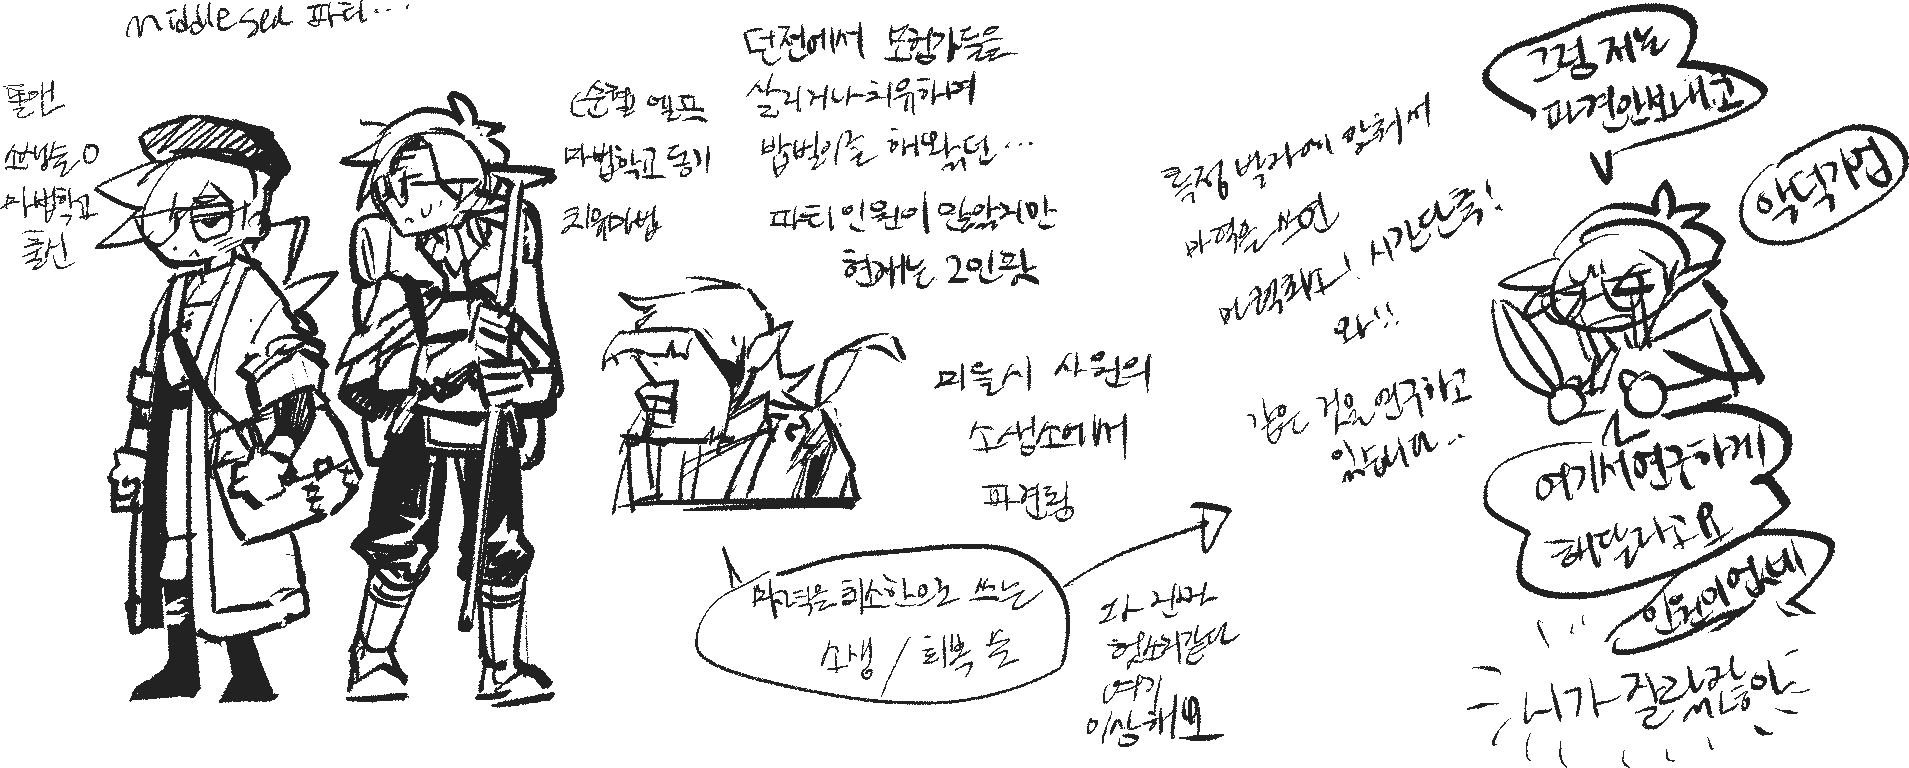 middle sea 파티...
톨맨
소생술 O
마법학교
출신
(순혈) 엘프
마법학교 동기
치유마법
던전에서 모험가들을
살리거나 치유하여
밥벌이를 해왔던...
파티 인원이 많았지만
현재는 2인팟
미들시 사원의
소생소에서
파견됨
마력을 최소한으로 쓰는
소생 / 회복 술
다 진짜
헛소리같다
여기
이상해요
특정 발자에 맞춰서
마력을 쓰면
마력최소! 시간단축!
와!!
같은 것을 연구하고
있습니다..
그럼 저는
파견안보내고
악덕기업
여기서연구하게
해달라고요
인원이 없네
니가 잘랐잖아